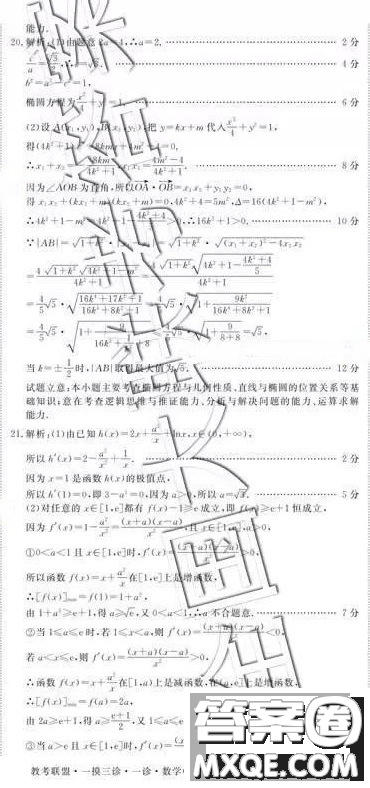 能力.
20.解析:(1)由题意2a=4,∴a=2. 2分
∴c=√3. 4分
b²=a²-c²=1,
椭圆方程为x²/4+y²=1. 6分
(2)设A(x₁,y₁),B(x₂,y₂),把y=kx+m代入x²/4+y²=1,
得(4k²+1)x²+8kmx+4m²-4=0,
∴x₁+x₂=-8km/(4k²+1),x₁x₂=(4m²-4)/(4k²+1). 8分
因为∠AOB为直角,所以OA·OB=x₁x₂+y₁y₂=0,
得x₁x₂+(kx₁+m)(kx₂+m)=0,4k²+4=5m²,Δ=16(4k²+1-m²),
∴4k²+1-m²=4k²+1-(4k²+4)/5>0,∴16k²+1>0. 10分
∵|AB|=√(1+k²)·|x₁-x₂|=√(1+k²)·√((x₁+x₂)²-4x₁x₂)
=4√(1+k²)√(4k²+1-m²)/(4k²+1)=4√(1+k²)√(4k²+1-(4k²+4)/5)/(4k²+1)
=4/5√5·√((16k⁴+17k²+1)/(16k⁴+8k²+1))=4/5√5·√(1+9k²/(16k⁴+8k²+1))
√(1+9/(8+8))=√5,
当k=±1/2时,|AB|取得最大值为√5. 12分
试题立意:本小题主要考查椭圆方程与几何性质、直线与椭圆的位置关系等基
础知识;意在考查逻辑思维与推证能力、分析与解决问题的能力、运算求解
能力.
21.解析:(1)由已知h(x)=2x+a²/x+lnx,x∈(0,+∞),
所以h′(x)=2-a²/x²+1/x. 2分
因为x=1是函数h(x)的极值点,
所以h′(1)=0,即3-a²=0,因为a>0,所以a=√3. 5分
(2)对任意的x∈[1,e]都有f(x)-1≥e成立,即f(x)≥e+1恒成立,
因为f′(x)=1-a²/x²=(x+a)(x-a)/x²,且x∈[1,e],a>0,
①0<a<1且x∈[1,e]时,f′(x)=(x+a)(x-a)/x²>0,
所以函数f(x)=x+a²/x在[1,e]上是增函数,
∴[f(x)]min=f(1)=1+a²,
由1+a²≥e+1,得a≥√e,又0<a<1,∴a不合题意. 7分
②当1≤a≤e时,若1≤x<a,则f′(x)=(x+a)(x-a)/x²<0,
若a<x≤e,则f′(x)=(x+a)(x-a)/x²>0,
∴函数f(x)=x+a²/x在[1,a)上是减函数,在(a,e]上是增函数,
∴[f(x)]min=f(a)=2a,
由2a≥e+1,得a≥(e+1)/2,又1≤a≤
③当a>e且x∈[1,e]时,f′(x)=
教考联盟·一摸三诊·一诊·数学
答案圈
MXQE.COM